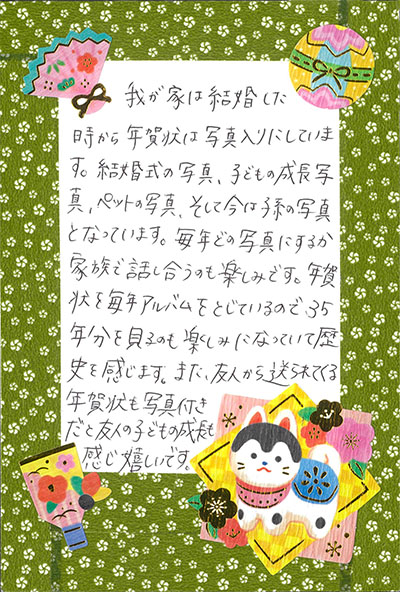 我が家は結婚した
時から年賀状は写真入りにしていま
す。結婚式の写真、子どもの成長写
真、ペットの写真、そして今は孫の写真
となっています。毎年どの写真にするか
家族で話し合うのも楽しみです。年賀
状を毎年アルバムをとじているので、35
年分を見るのも楽しみになっていて歴
史を感じます。また、友人から送られてくる
年賀状も写真付き
だと友人の子どもの成長も
感じ嬉しいです。